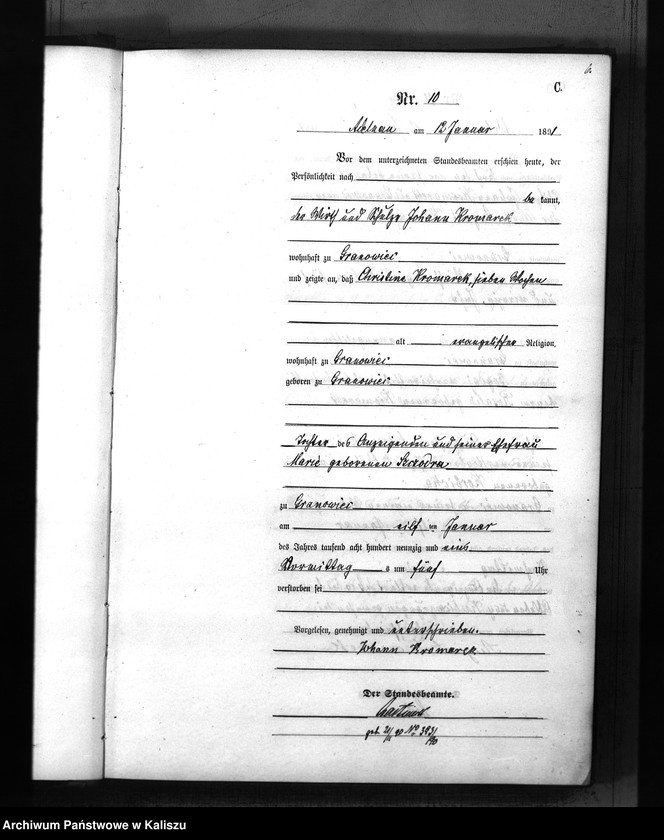 6.
C.
Nr. 10
Adelnau am 12 Januar 1891
Vor dem unterzeichneten Standesbeamten erschien heute, der
Persönlichkeit nach
be kannt,
der Wirth und Schulze Johann Kromarek
wohnhaft zu Granowiec
und zeigte an, daß Christine Kromarek, sieben Wochen
alt evangelischer Religion,
wohnhaft zu Granowiec
geboren zu Granowiec
Tochter des Anzeigenden und seiner Ehefrau
Marie geborenen
zu Granowiec
am eilf ten Januar
des Jahres tausend acht hundert neunzig und eins
Vormittag s um fünf Uhr
verstorben sei
Vorgelesen, genehmigt und unterschrieben.
Johann Kromarek
Der Standesbeamte.
geb. 21/11 90 No 393/90
Archiwum Państwowe w Kaliszu